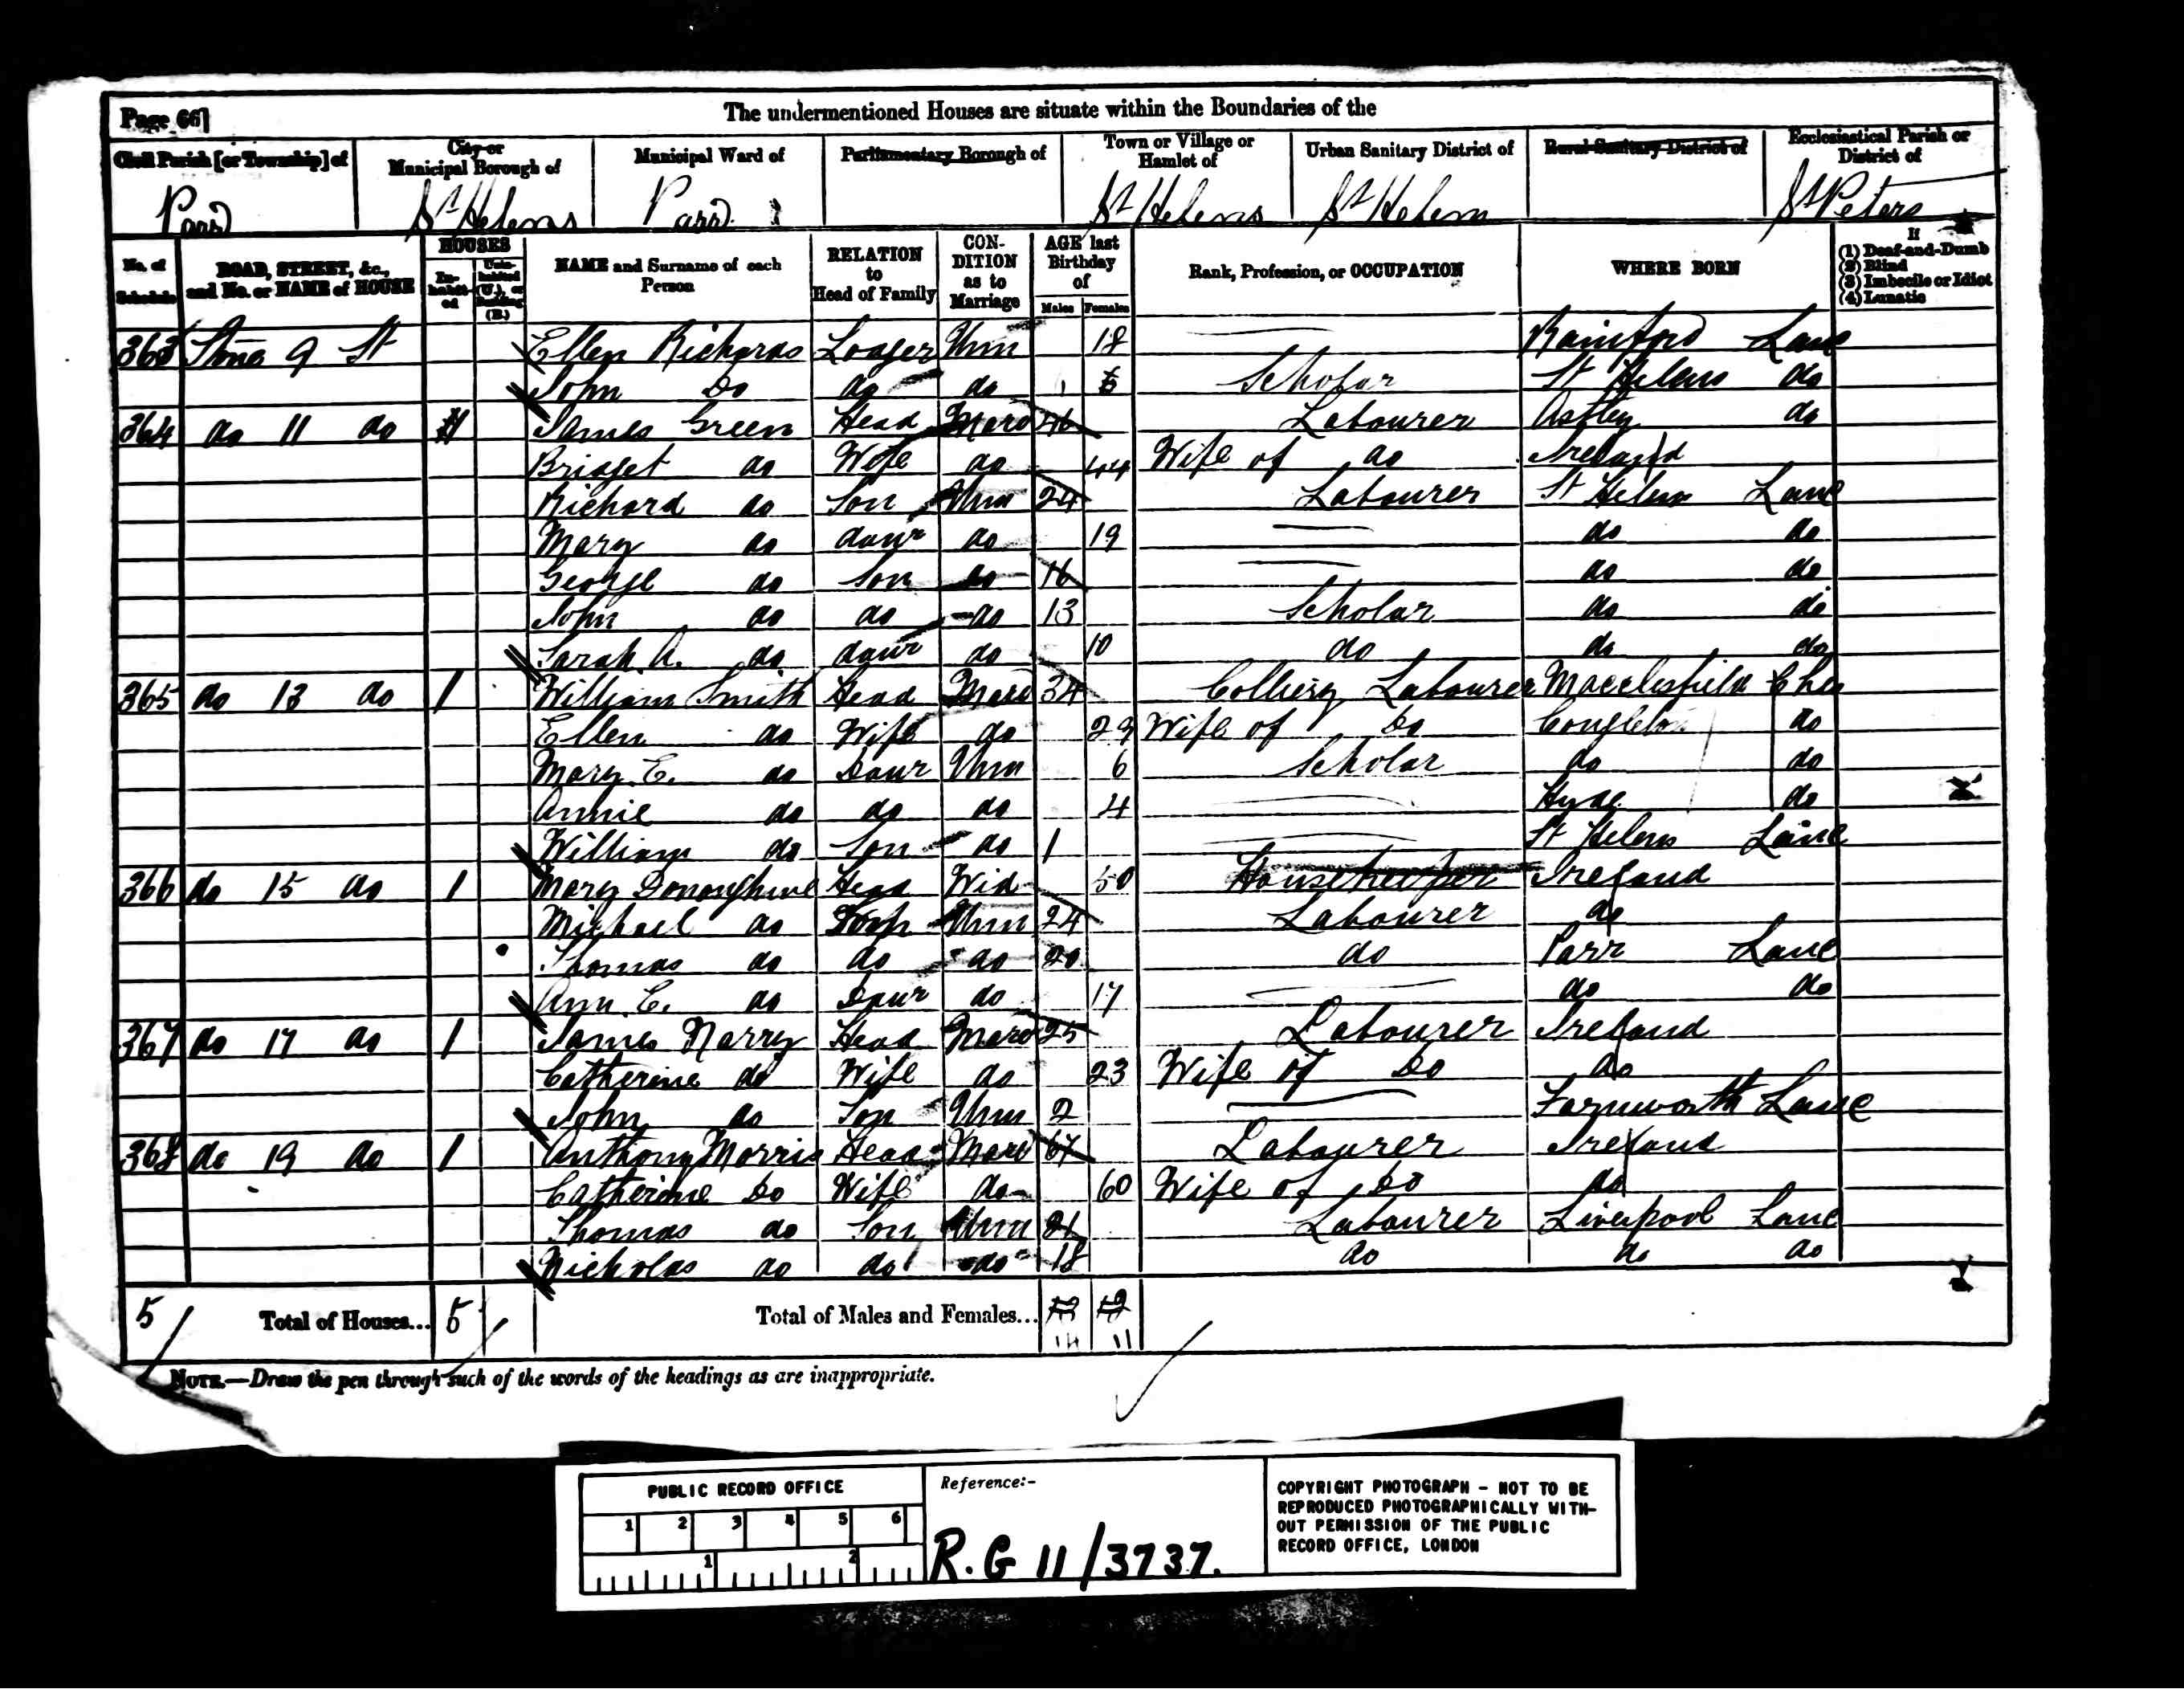 Page 66]
The undermentioned Houses are situate within the Boundaries of the
Civil Parish [or Township] of
City or Municipal Borough of
Municipal Ward of
Parliamentary Borough of
Town or Village or Hamlet of
Urban Sanitary District of
Rural Sanitary District of
Ecclesiastical Parish or District of
Parr St Helens Parr St Helens St Helens St Peters
No. of Schedule
ROAD, STREET, &c., and No. or NAME of HOUSE
HOUSES
Inhabited
Uninhabited (U.), or Building (B.)
NAME and Surname of each Person
RELATION to Head of Family
CONDITION as to Marriage
AGE last Birthday of
Males Females
Rank, Profession, or OCCUPATION
WHERE BORN
If
(1) Deaf-and-Dumb
(2) Blind
(3) Imbecile or Idiot
(4) Lunatic
363 9 St Ellen Richards Lodger Unm 18 Rainford Lanc
John Do do do Scholar St Helens do
364 do 11 do 1 James Green Head Mard 46 Labourer Astley do
Bridget do Wife do 44 Wife of do Ireland
Richard do Son Unm 24 Labourer St Helens Lanc
Mary do daur do 19 do do
George do Son do 16 do do
John do do do 13 Scholar do do
Sarah A. do daur do 10 do do do
365 do 13 do 1 William Smith Head Mard 34 Colliery Labourer Macclesfield Ches
Ellen do Wife do 29 Wife of Do Congleton do
Mary E. do Daur Unm 6 Scholar do do
Annie do do do 4 Hyde do
William do Son do 1 St Helens Lanc
366 do 15 do 1 Mary Donoghue Head Wid 50 Housekeeper Ireland
Michael do Son Unm 24 Labourer do
Thomas do do do 20 do Parr Lanc
Ann E. do Daur do 17 do do
367 do 17 do 1 James Narry Head Mard 25 Labourer Ireland
Catherine do Wife do 23 Wife of Do do
John do Son Unm 2 Farnworth Lanc
368 do 19 do 1 Anthony Morris Head Mard 67 Labourer Ireland
Catherine Do Wife do 60 Wife of Do do
Thomas do Son Unm 21 Labourer Liverpool Lanc
Nicholas do do do 18 do do do
5 Total of Houses... 5 Total of Males and Females...
14 11
NOTE.—Draw the pen through such of the words of the headings as are inappropriate.
PUBLIC RECORD OFFICE
1 2 3 4 5 6
1 2
Reference:-
R.G 11/3737.
COPYRIGHT PHOTOGRAPH - NOT TO BE
REPRODUCED PHOTOGRAPHICALLY WITH-
OUT PERMISSION OF THE PUBLIC
RECORD OFFICE, LONDON